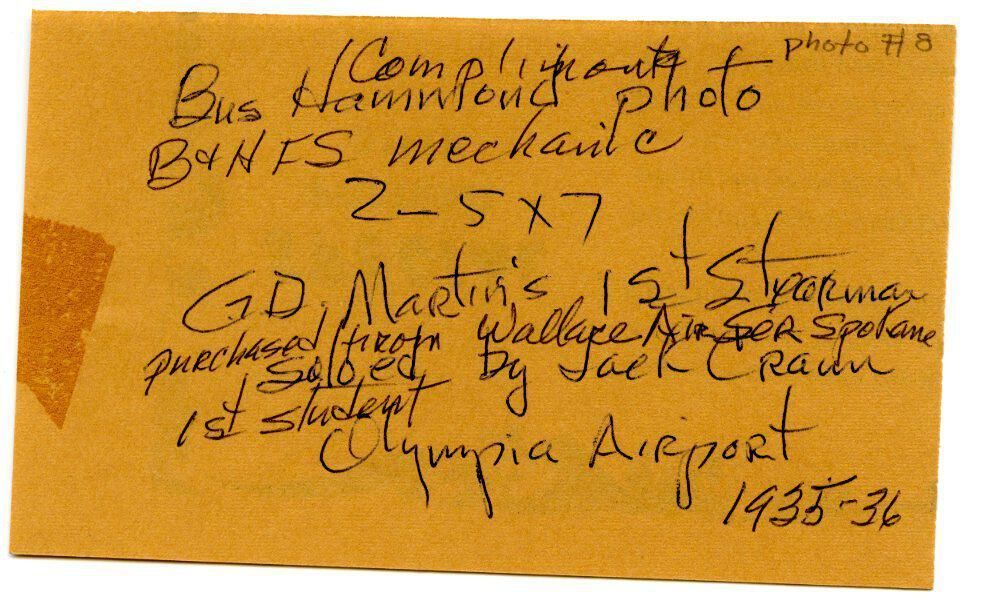 photo #8
Compliments
Bus Hammond photo
B&H FS mechanic
2-5x7
GD. Martin's 1st Stearman
purchased from Wallace Air Ser Spokane
Soloed by Jack
1st student
Olympia Airport
1935-36